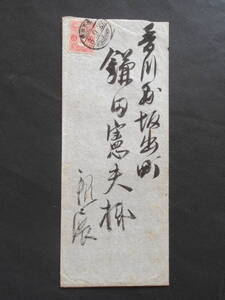 香川縣坂出町
鎌田憲夫様
親展